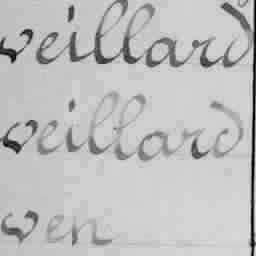 veillard
veillard
ven